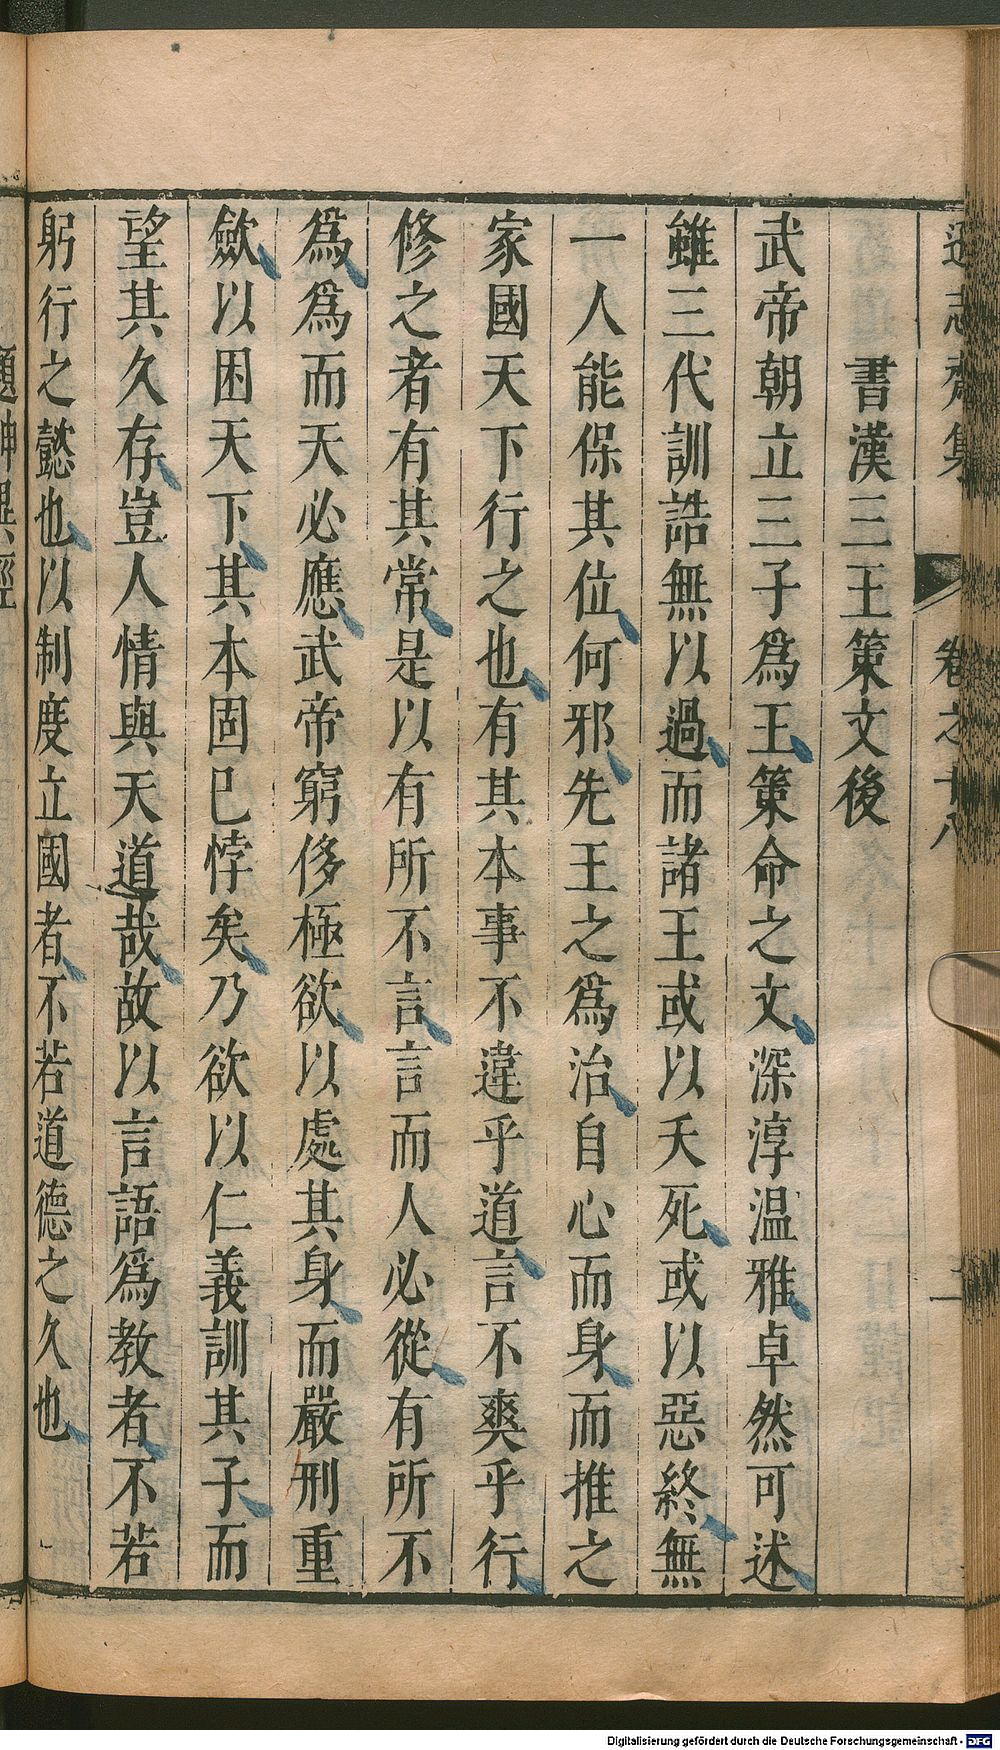 遜志齋集 卷之十八 二
書漢三王策文後
武帝朝立三子爲王策命之文深淳温雅卓然可述
雖三代訓誥無以過而諸王或以夭死或以惡終無
一人能保其位何邪先王之爲治自心而身而推之
家國天下行之也有其本事不違乎道言不爽乎行
修之者有其常是以有所不言言而人必從有所不
爲爲而天必應武帝窮侈極欲以處其身而嚴刑重
歛以困天下其本固已悖矣乃欲以仁義訓其子而
望其久存豈人情與天道哉故以言語爲教者不若
躬行之懿也以制度立國者不若道德之久也
題神異經
Digitalisierung gefördert durch die Deutsche Forschungsgemeinschaft - DFG